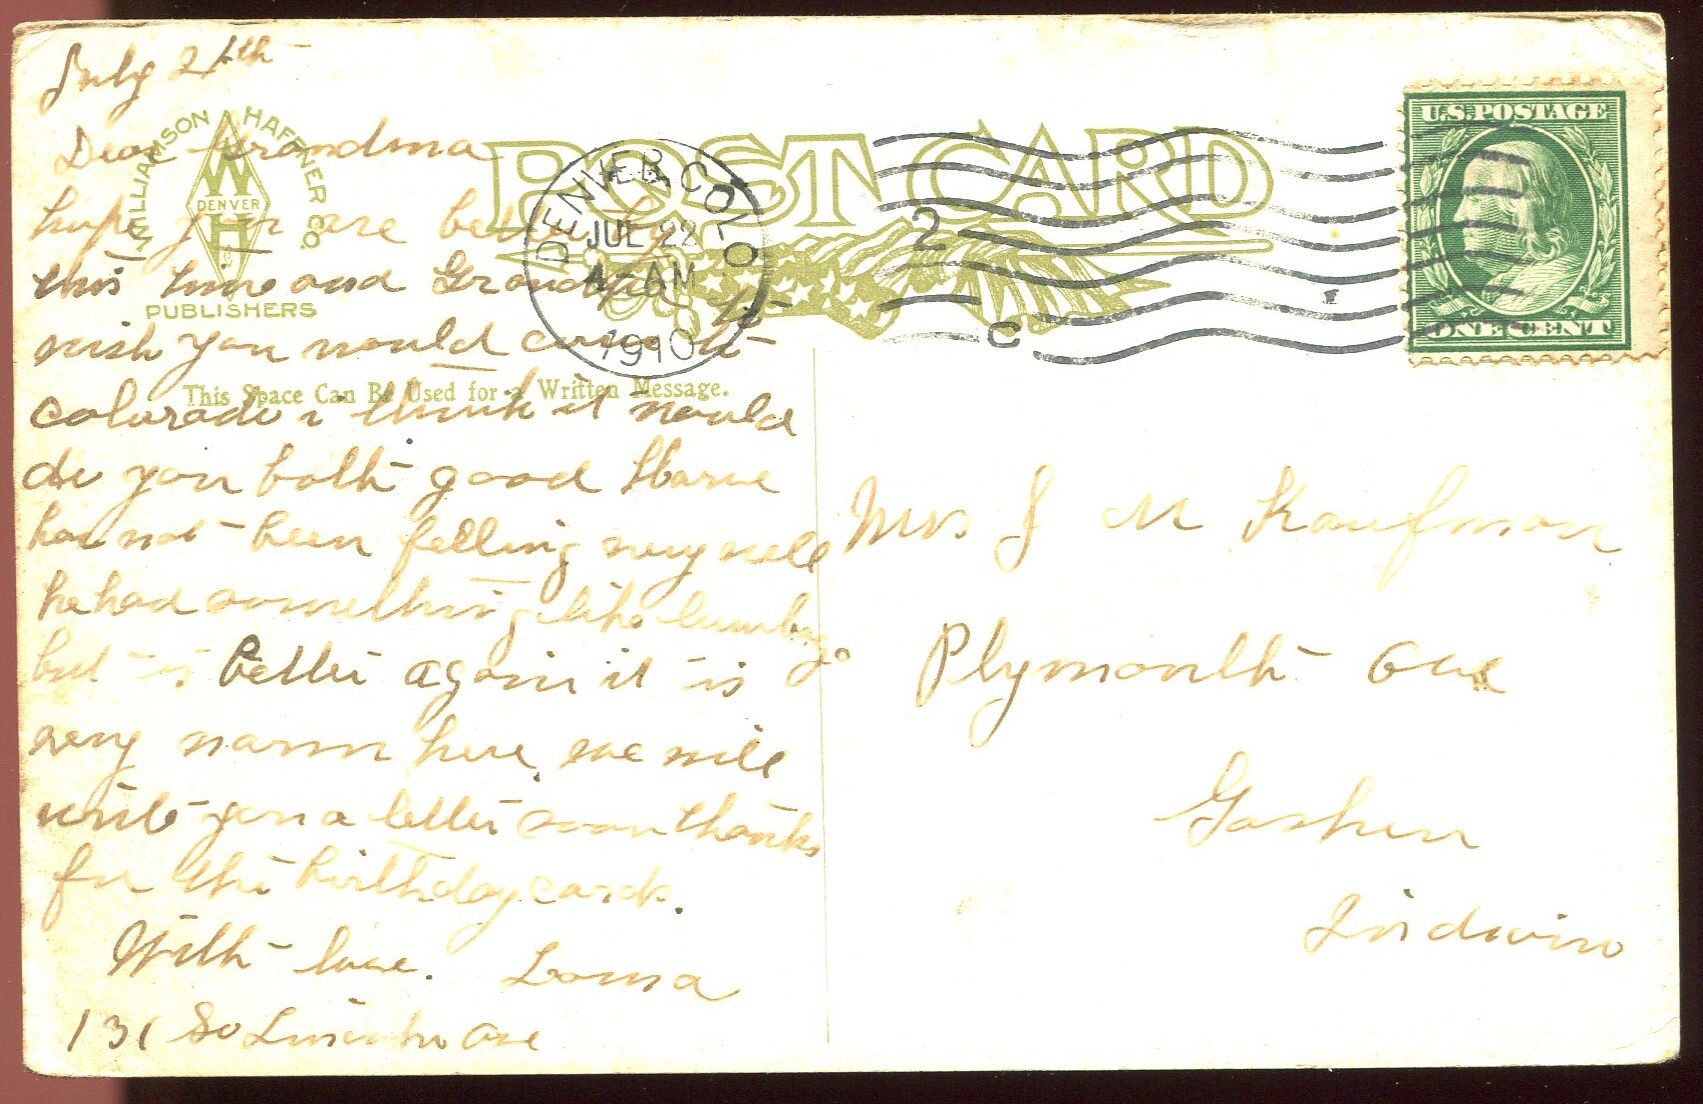 July 21th
Dear Grandma
hope you are better by
this time and Grandpa to
wish you would come to
Colorado i think it would
do you both good Harve
has not been felling very well
he had something like lumbago
but is better again it is
very warm here, we will
write you a letter soon thanks
for the birthday cards.
With love. Lorna
131 So Lincoln Ave
WILLIAMSON HAFFNER CO.
W
DENVER
H
PUBLISHERS
POST CARD
This Space Can Be Used for a Written Message.
DENVER, COLO.
JUL 22
4 - AM
1910
2
C
U.S. POSTAGE
ONE CENT
Mrs J M Kaufman
Plymouth Ave
Goshen
Indiana